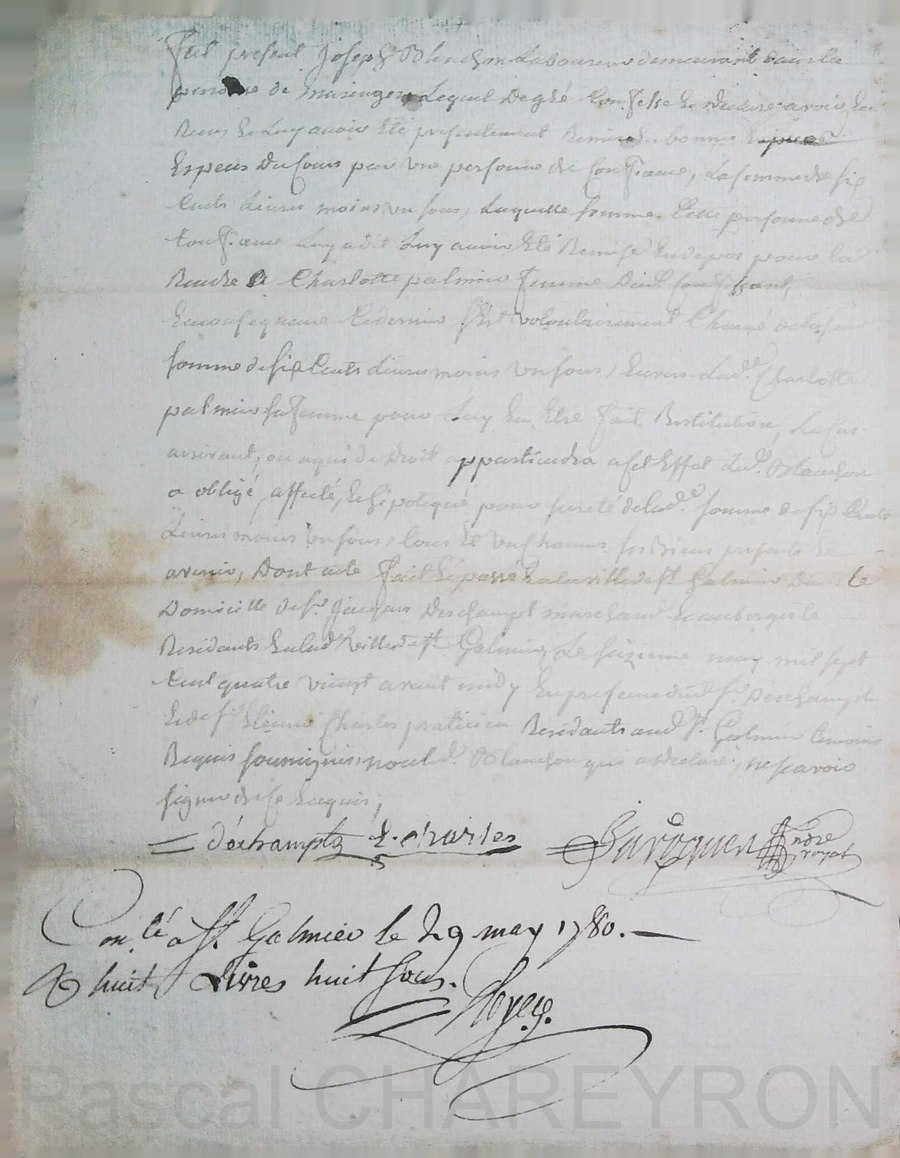 fut present Joseph Blanchon Laboureur demeurant dans la
paroisse de Maringes Lequel de gré Confesse et declare avoir
Receu et Luy avoir Eté presentement Remis en bonnes
Especes du Cours par une personne de Confiance, La somme de six
Cents Livres moins un sous, Laquelle somme cette personne de
Confiance Luy a dit Luy avoir Eté Remise En depos pour la
Rendre a Charlotte palmier femme dud. Confessant,
En consequence Ce dernier s'Est volontairement Chargé de lad.
somme de six Cents Livres moins un sous, Envers Lad.e Charlotte
palmier sa femme pour Luy En Etre fait Restitution, Le Cas
arrivant, ou a qui de Droit appartiendra a Cet Effet Led. Blanchon
a obligé, affecté, et hipotequé pour sureté de lad.e somme de six Cents
Livres moins un sous, tous et un chacuns ses Biens presents et
avenir, Dont acte fait et passé En la ville de st Galmier Dans le
Domicille de sr Jacques Deschampt marchand et aubergiste
Residants En lad ville de st Galmier, Le seizieme may mil sept
Cent quatre vingt avant midy En presence dud sr Deschampt
Et de sr Etienne Charles praticien Residants aud st Galmier temoins
Requis soussignés, non led. Blanchon qui a declaré ne scavoir
signer de ce Enquis;
déchamptz E. charles
Con.lé a St. Galmier le 29 may 1780.
R huit Livres huit sous.
Rascal CHAREYRON